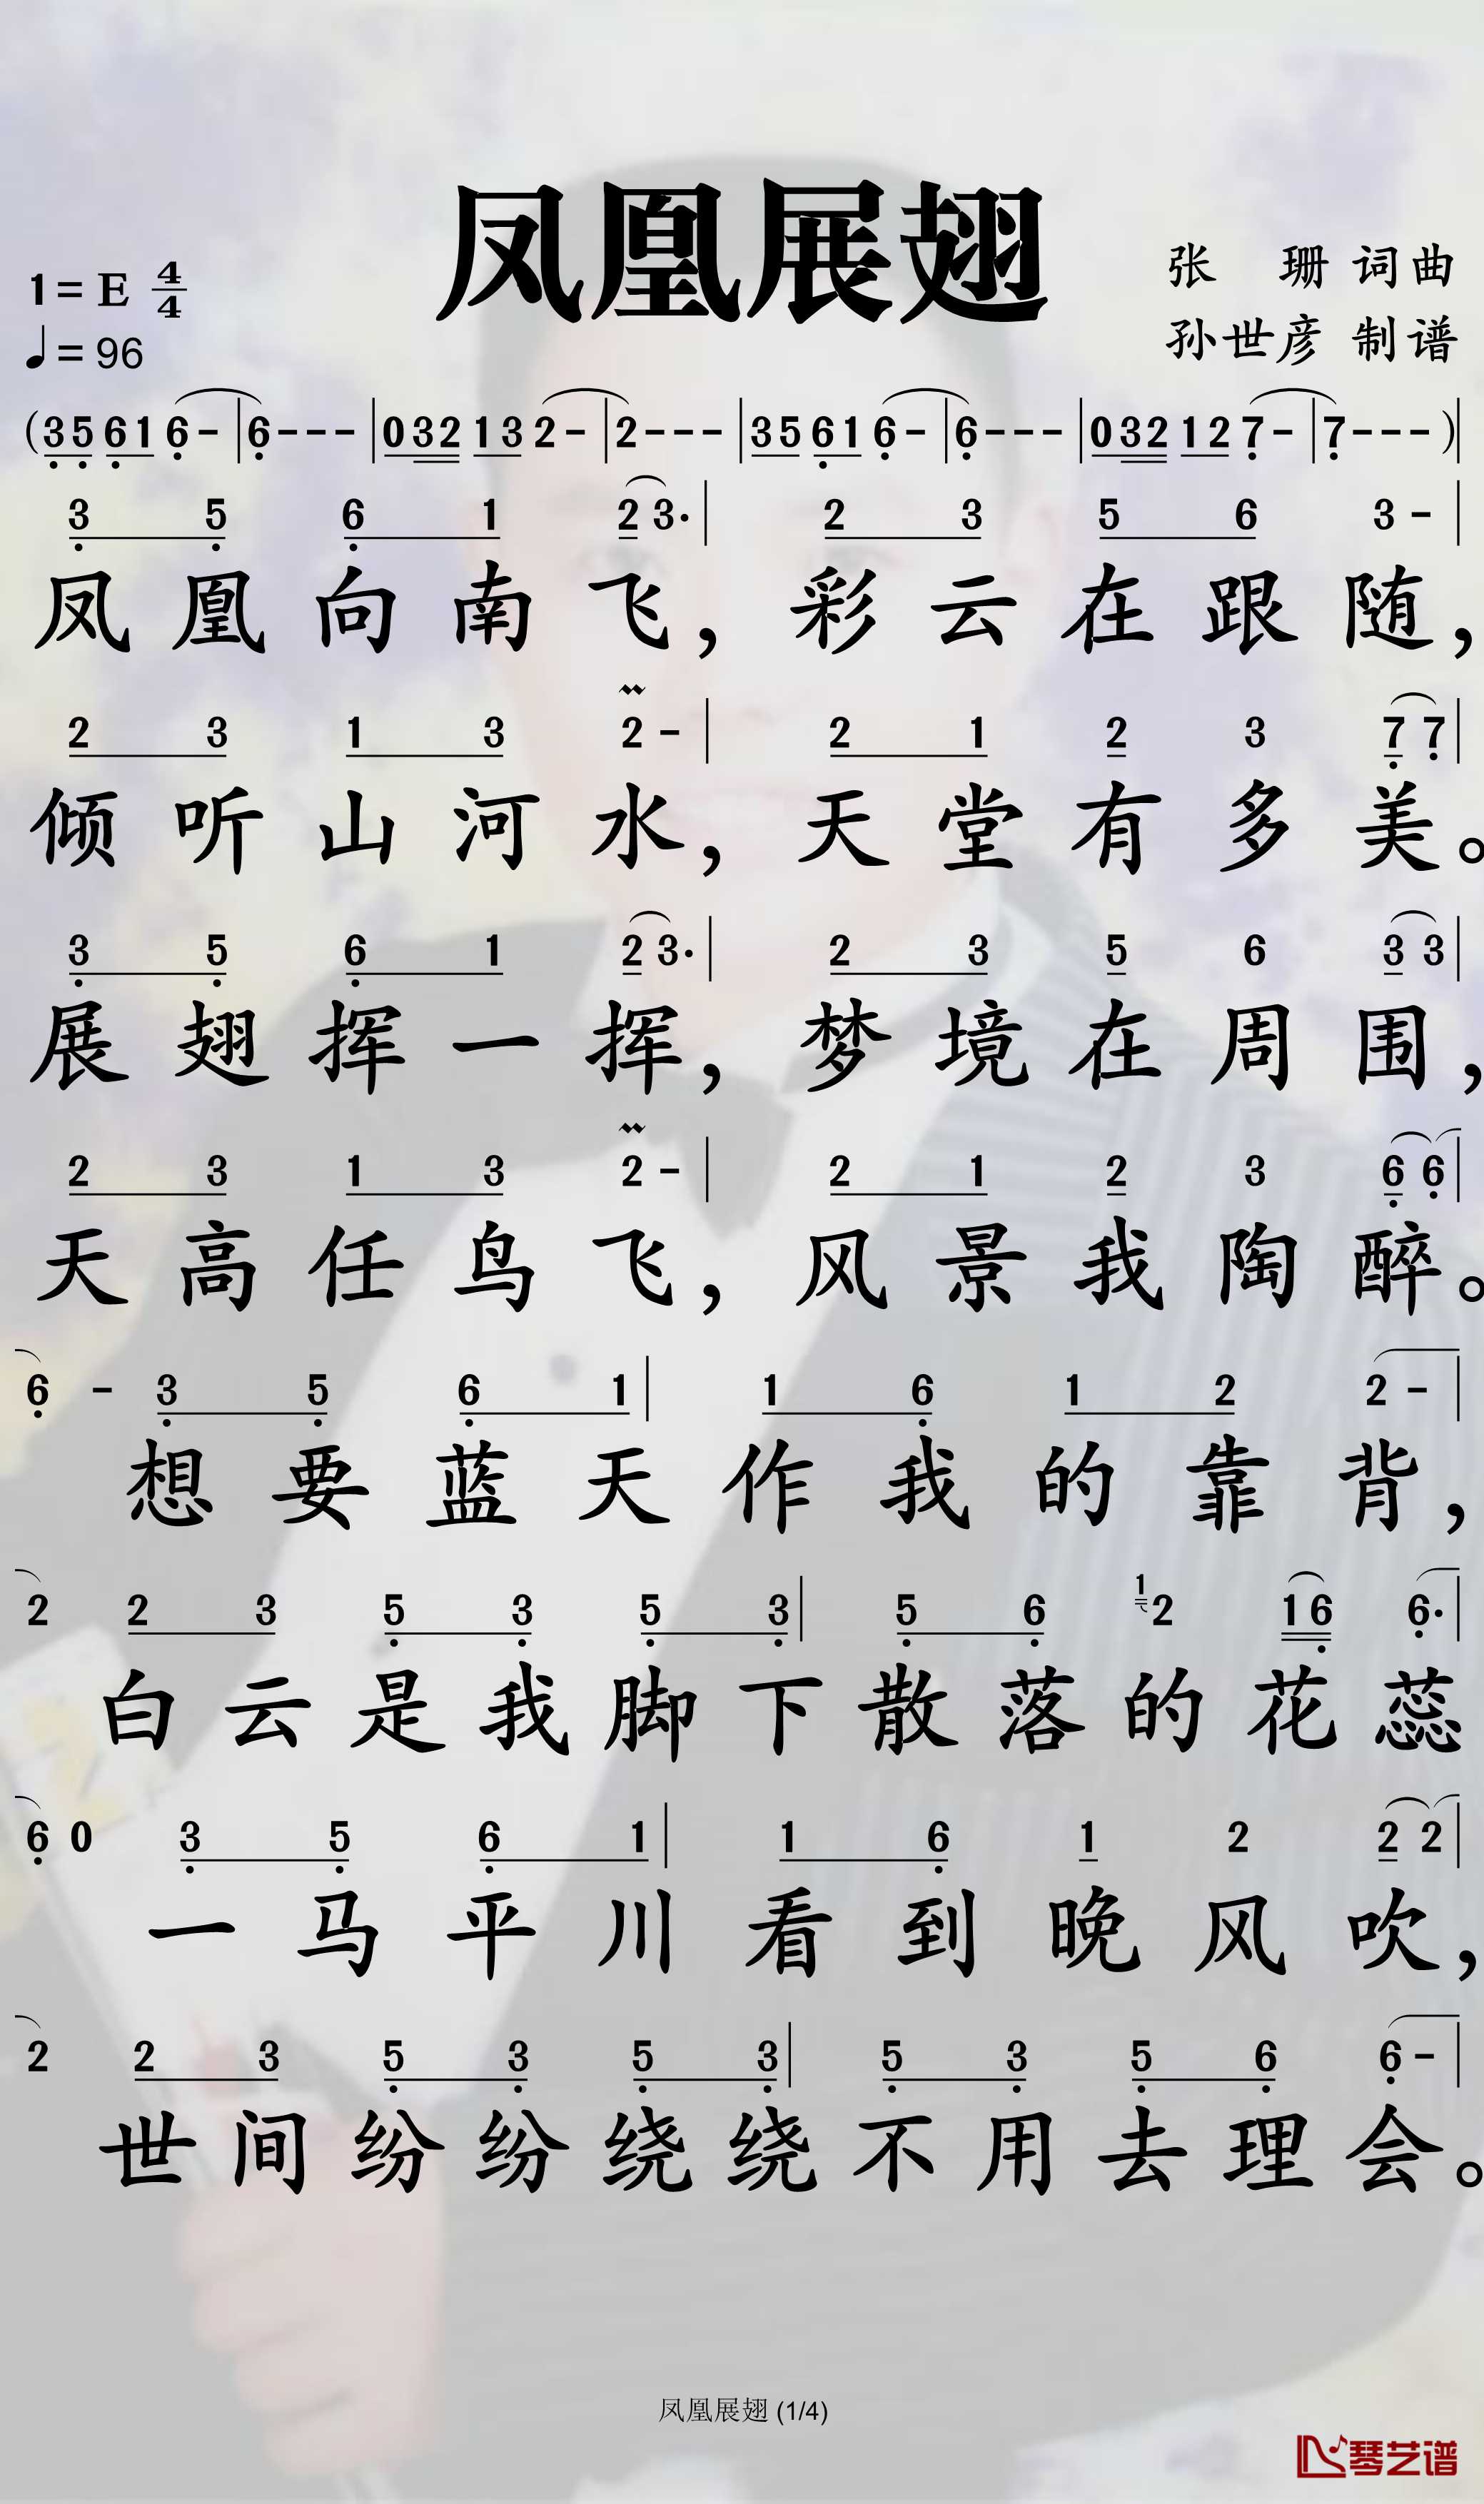 凤凰展翅
1=E 4/4
张 珊 词曲
♩=96
孙世彦 制谱
(35 61 6- | 6--- | 032 13 2- | 2--- | 35 61 6- | 6--- | 032 12 7- | 7---)|
3 5 6 1 2 3. | 2 3 5 6 3 - |
凤凰向南飞，彩云在跟随，
2 3 1 3 2 - | 2 1 2 3 7 7 |
倾听山河水，天堂有多美。
3 5 6 1 2 3. | 2 3 5 6 3 3 |
展翅挥一挥，梦境在周围，
2 3 1 3 2 - | 2 1 2 3 6 6 |
天高任鸟飞，风景我陶醉。
6 - 3 5 6 1 | 1 6 1 2 2 - |
想要蓝天作我的靠背，
2 2 3 5 3 5 3 | 5 6 1 2 1 6 6. |
白云是我脚下散落的花蕊
6 0 3 5 6 1 | 1 6 1 2 2 2 |
一马平川看到晚风吹，
2 2 3 5 3 5 3 | 5 3 5 6 6 - |
世间纷纷绕绕不用去理会。
凤凰展翅 (1/4)
琴艺谱